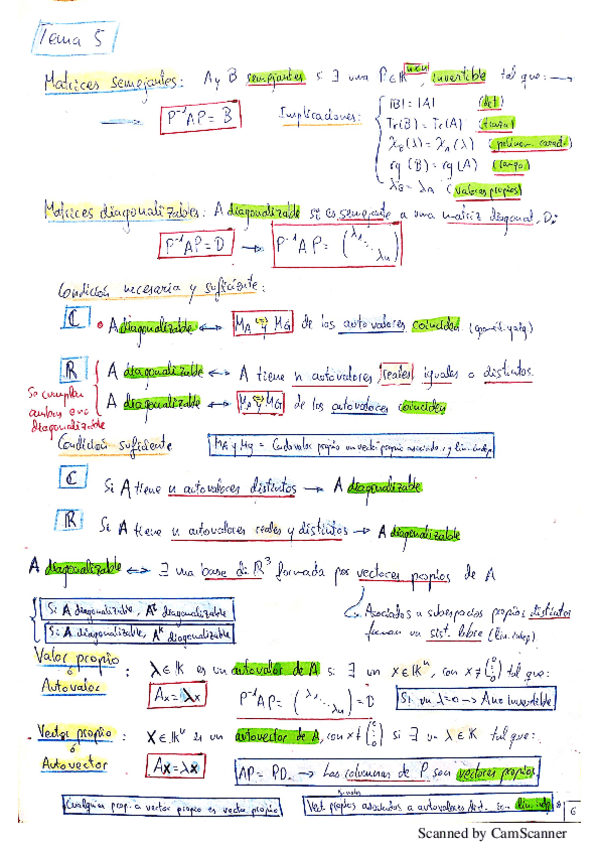 Tema 5
Matrices semejantes: A y B semejantes si ∃ una P∈𝕂ⁿˣⁿ, invertible tal que: →
→ P⁻¹AP = B Implicaciones:
|B| = |A| (det)
Tr(B) = Tr(A) (traza)
χ_B(λ) = χ_A(λ) (polinom. caract.)
rg(B) = rg(A) (rango)
λ_B = λ_A (valores propios)
Matrices diagonalizables: A diagonalizable si es semejante a una matriz diagonal, D:
P⁻¹AP = D → P⁻¹AP = (λ₁ ⋱ λₙ)
Condición necesaria y suficiente:
ℂ • A diagonalizable ↔ M_A y M_G de los autovalores coinciden
ℝ A diagonalizable ↔ A tiene n autovalores reales iguales o distintos.
A diagonalizable ↔ M_A y M_G de los autovalores coinciden
Se cumplen ambas diagonalizable
Condición suficiente M_A y M_G = Cada valor propio un vector propio asociado y lin. indep
ℂ Si A tiene n autovalores distintos → A diagonalizable
ℝ Si A tiene n autovalores reales y distintos → A diagonalizable
A diagonalizable ↔ ∃ una base de ℝ³ formada por vectores propios de A
Si A diagonalizable, Aᵗ diagonalizable
Si A diagonalizable, Aᵏ diagonalizable
Asociados a subespacios propios distintos forman un sist. libre (lin. indep)
Valor propio ó Autovalor : λ∈𝕂 es un autovalor de A si ∃ un x∈𝕂ⁿ, con x≠(0 0 0) tal que:
Ax = λx P⁻¹AP = (λ₁ ⋱ λₙ) = D Si un λ=0 → A no invertible
Vector propio ó Autovector : x∈𝕂ⁿ es un autovector de A, con x≠(0 0 0) si ∃ un λ∈𝕂 tal que:
Ax = λx AP = PD → Las columnas de P son vectores propios
Cualquier prop. a vector propio es vector propio
Vect. propios asociados a autovalores dist. son lin. indep
6
Scanned by CamScanner